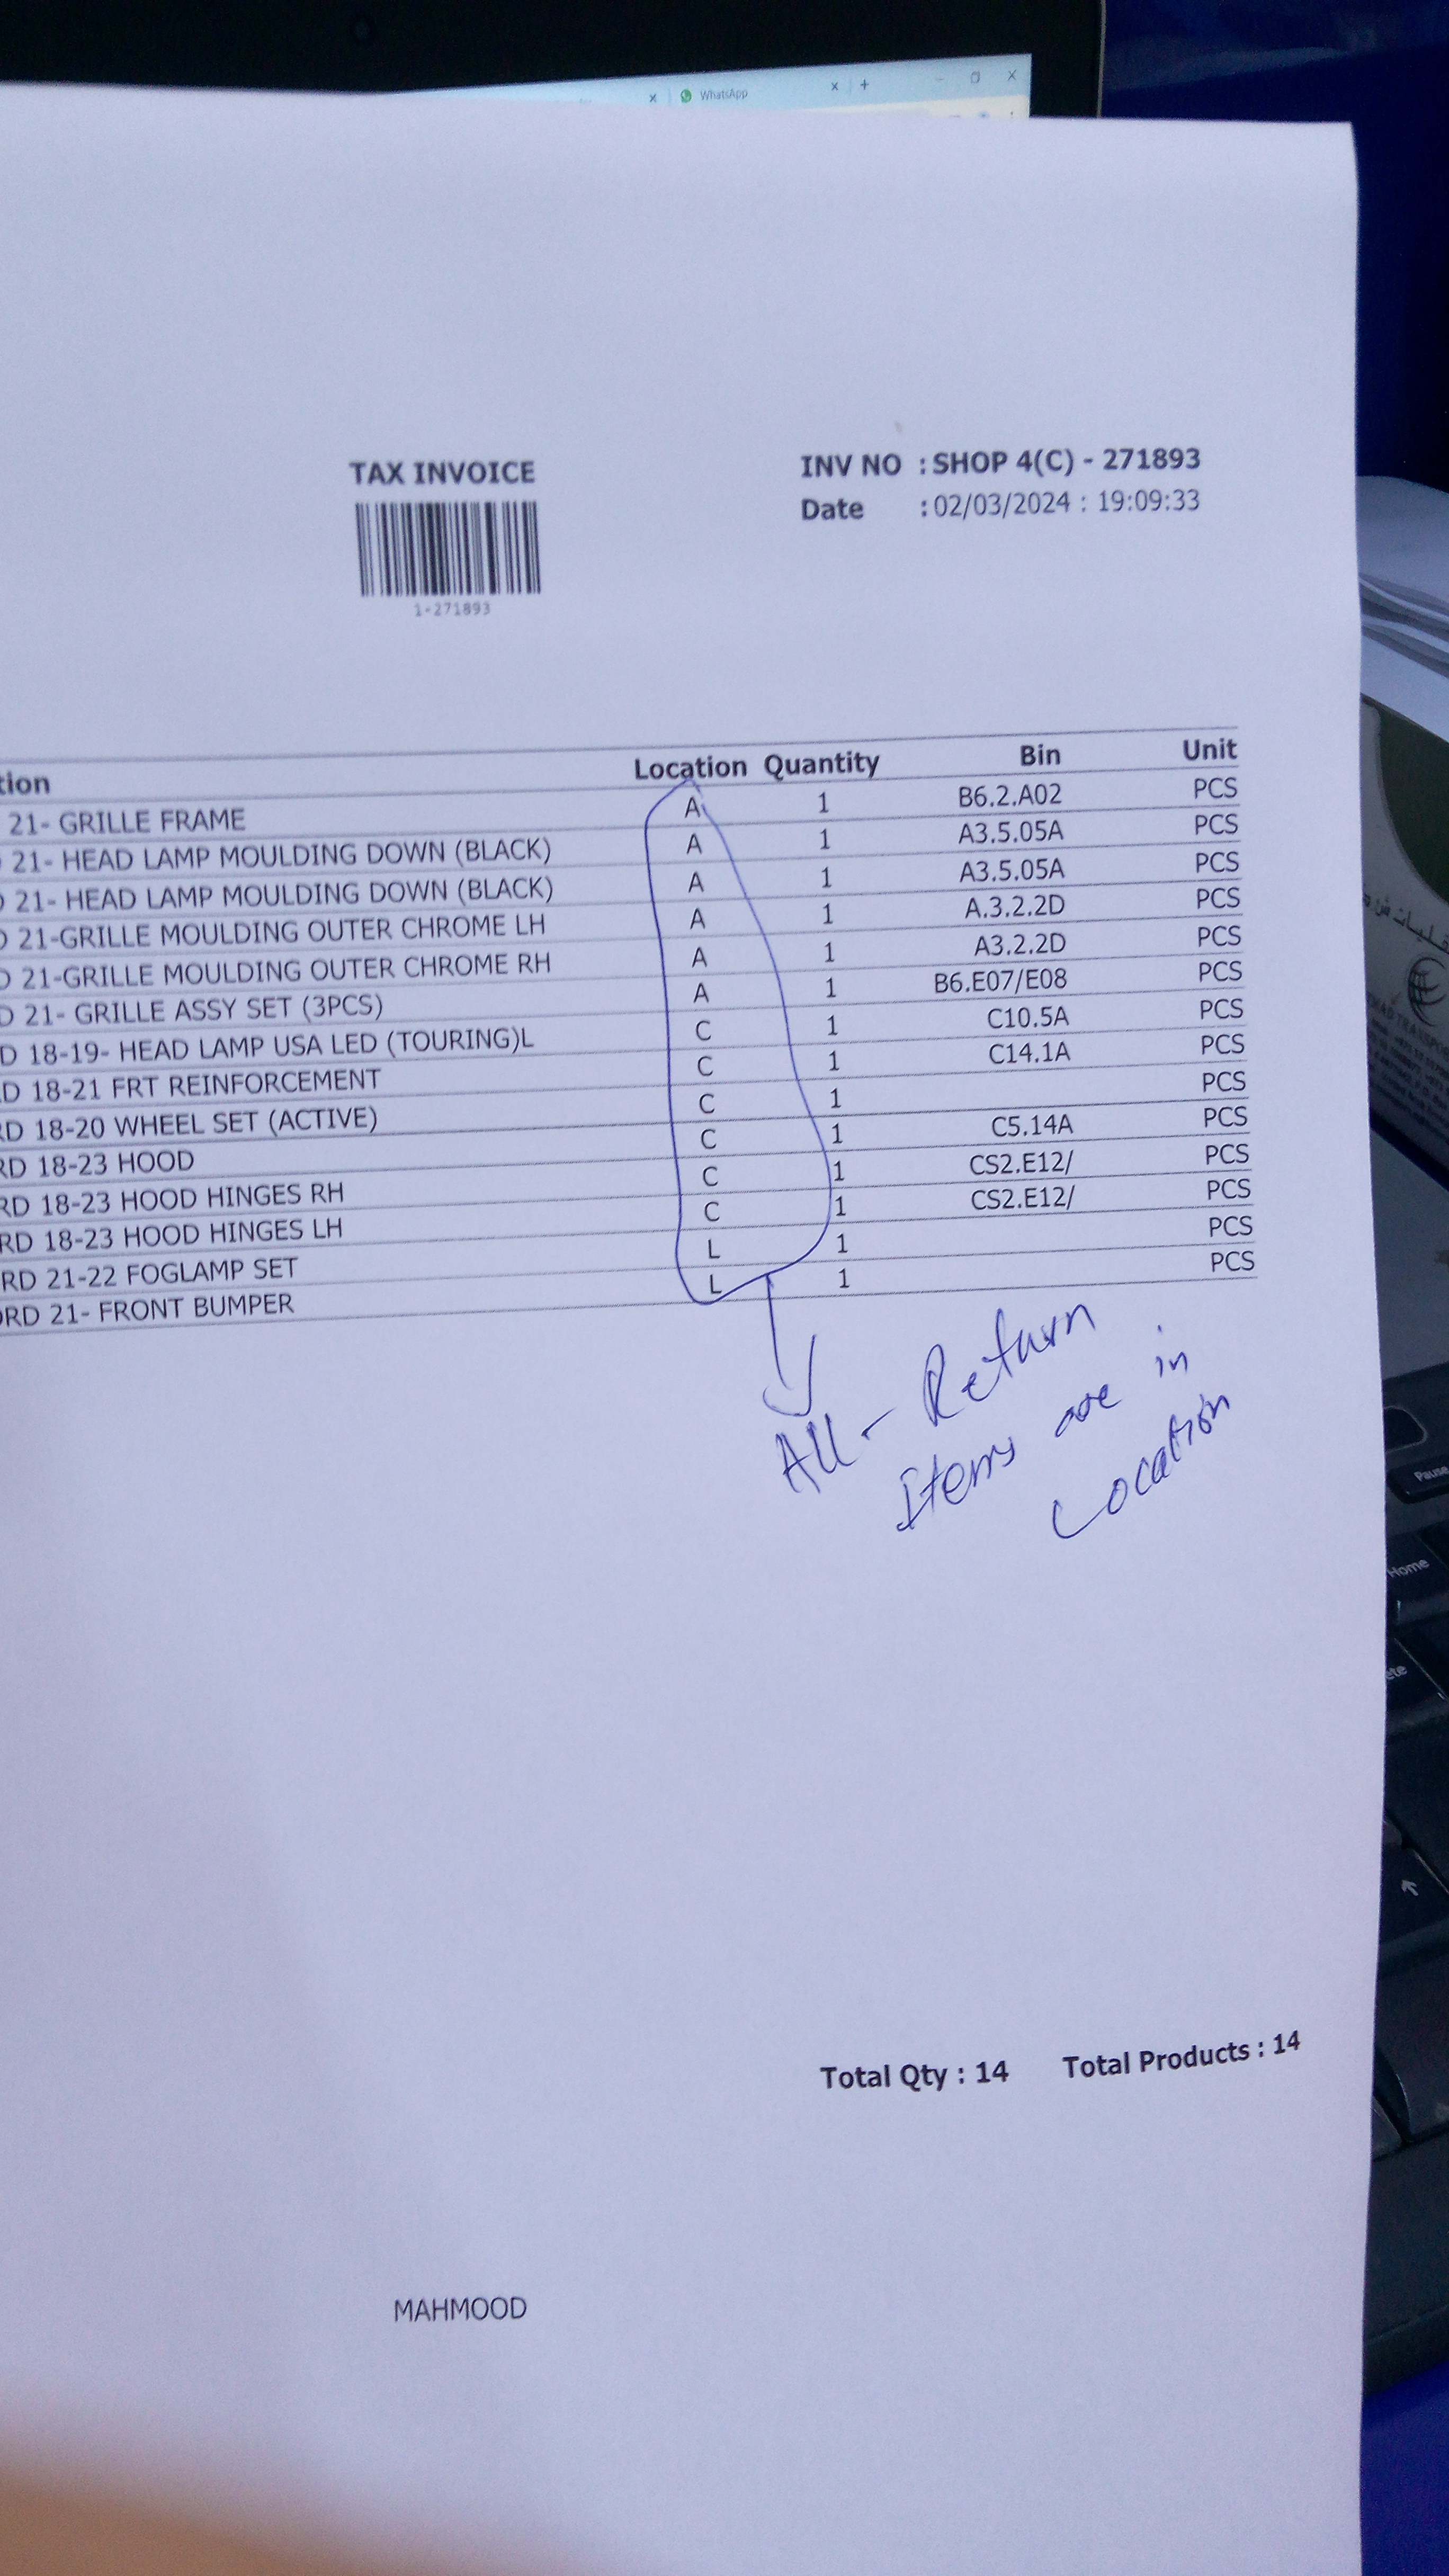 WhatsApp
TAX INVOICE
1-271893
INV NO : SHOP 4(C) - 271893
Date : 02/03/2024 : 19:09:33
tion Location Quantity Bin Unit
21- GRILLE FRAME A 1 B6.2.A02 PCS
21- HEAD LAMP MOULDING DOWN (BLACK) A 1 A3.5.05A PCS
D 21- HEAD LAMP MOULDING DOWN (BLACK) A 1 A3.5.05A PCS
D 21-GRILLE MOULDING OUTER CHROME LH A 1 A.3.2.2D PCS
D 21-GRILLE MOULDING OUTER CHROME RH A 1 A3.2.2D PCS
D 21- GRILLE ASSY SET (3PCS) A 1 B6.E07/E08 PCS
D 18-19- HEAD LAMP USA LED (TOURING)L C 1 C10.5A PCS
D 18-21 FRT REINFORCEMENT C 1 C14.1A PCS
RD 18-20 WHEEL SET (ACTIVE) C 1 PCS
RD 18-23 HOOD C 1 C5.14A PCS
RD 18-23 HOOD HINGES RH C 1 CS2.E12/ PCS
RD 18-23 HOOD HINGES LH C 1 CS2.E12/ PCS
RD 21-22 FOGLAMP SET L 1 PCS
ORD 21- FRONT BUMPER L 1 PCS
All - Return
Items are in
Location
Total Qty : 14 Total Products : 14
MAHMOOD
Pause
Home
ete